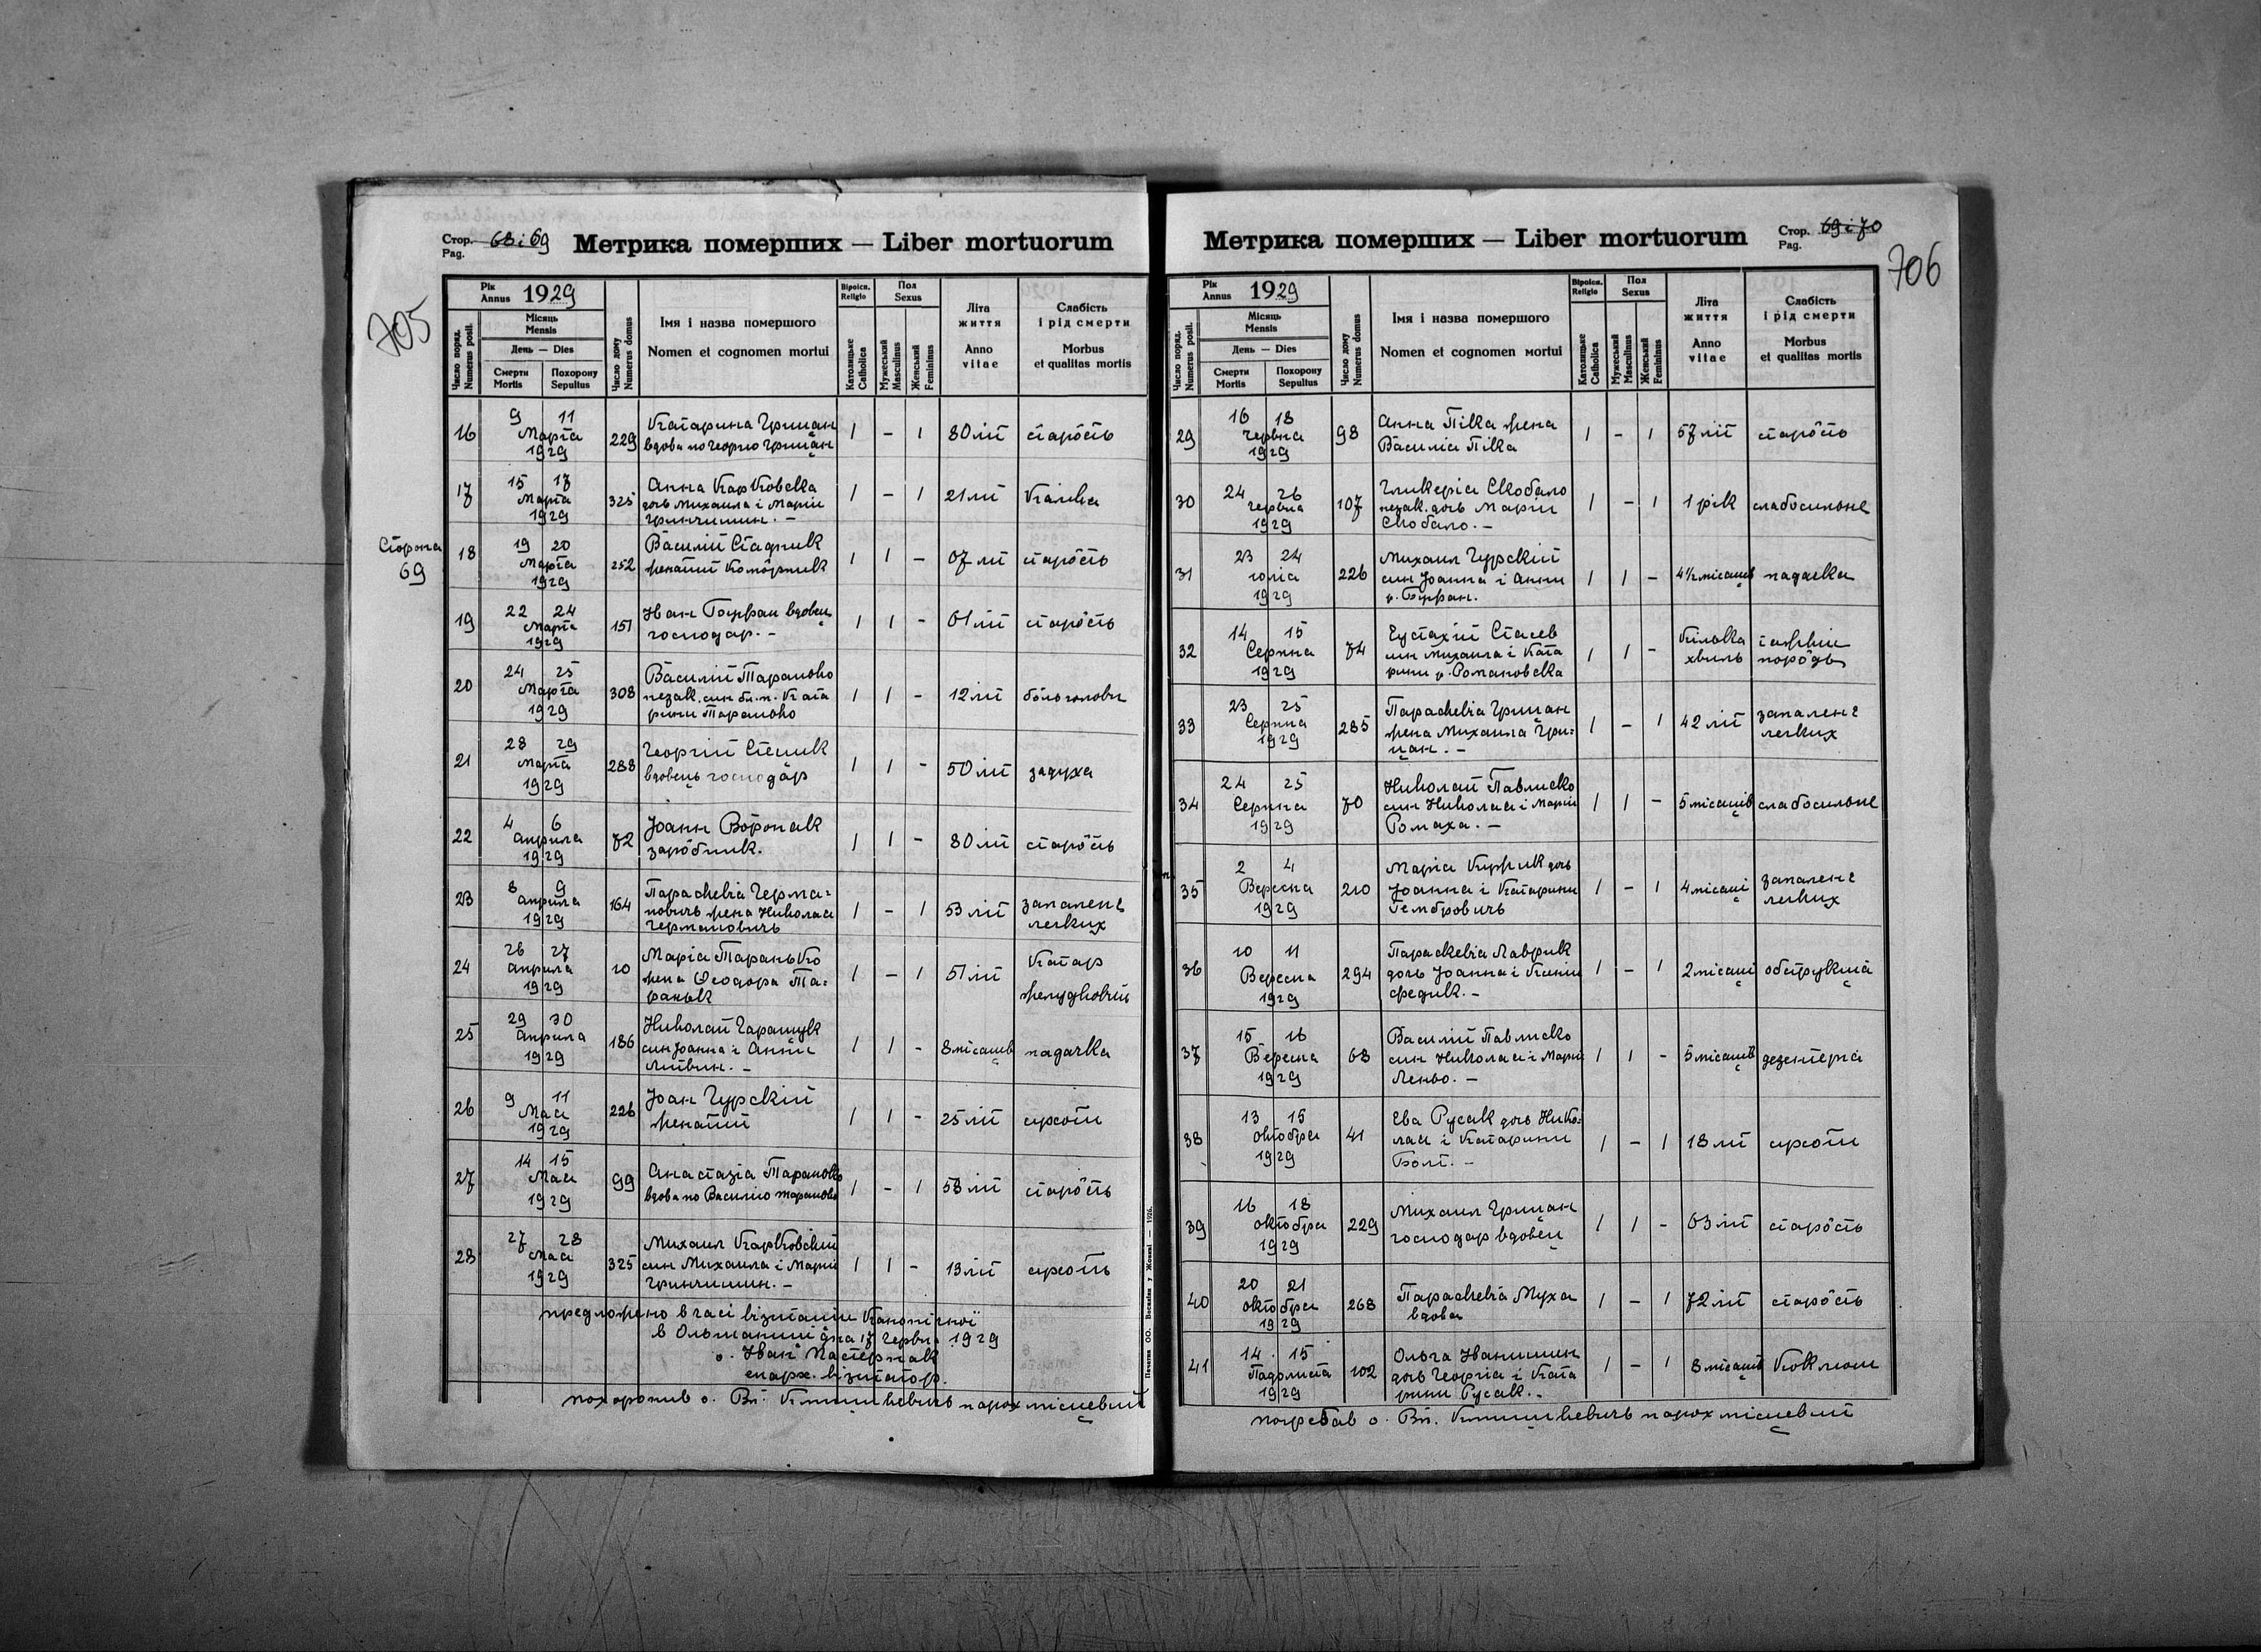 Стор. 68 i 69
Pag.
Метрика померших — Liber mortuorum
705
Рік
Annus 1929
Число поряд.
Numerus posit.
Місяць
Mensis
День — Dies
Смерти
Mortis
Похорону
Sepultus
Число дому
Numerus domus
Імя і назва помершого
Nomen et cognomen mortui
Віроісп.
Religio
Католицьке
Catholica
Пол
Sexus
Мужеський
Masculinus
Женський
Femininus
Літа
життя
Anno
vitae
Слабість
і рід смерти
Morbus
et qualitas mortis
16 9 11 Марта 1929 229 Катарина Грицан
вдова по Георгію Грицан 1 – 1 80 літ старôсть
17 15 17 Марта 1929 325 Анна Карковска
дочь Михаила і Маріи
Гринчишин. – 1 – 1 21 літ
Сторона
69
18 19 20 Марта 1929 252 Василій Стадник
женатий комôрник 1 1 – 67 літ старôсть
19 22 24 Марта 1929 151 Иван вдовец
господар. – 1 1 – 61 літ старôсть
20 24 25 Марта 1929 308 Василій Таранько
незак. син Ката
рини Таранько 1 1 – 12 літ болю голови
21 28 29 Марта 1929 288 Георгій Стецик
вдовець господар 1 1 – 50 літ задуха
22 4 6 Априля 1929 72 Јоанн Вороняк
зарôбник. 1 1 – 80 літ старôсть
23 8 9 Априля 1929 164 Параскевія Герма-
новичь жена Николая
Германовичь 1 – 1 53 літ запалене
легких
24 26 27 Априля 1929 10 Марія Таранько
жена Ѳеодора Та-
ранько 1 – 1 51 літ Катар
желудковий
25 29 30 Априля 1929 186 Николай Гаращук
син Јоанна і Анни
Литвин. – 1 1 – 8 місяцев падачка
26 9 11 Мая 1929 226 Јоан Гурский
женатий 1 1 – 25 літ сухоти
27 14 15 Мая 1929 99 Анастазія Таранько
вдова по Василію Таранько 1 – 1 58 літ старôсть
28 27 28 Мая 1929 325 Михаил Карковский
син Михаила і Маріи
Гринчишин. – 1 1 – 13 літ сухоть
предложено в часі візитаціи Канонічної
в Ольшаници дня 17 червня 1929
о. Иван Пастернак
епарх. візитатор.
похоронив о. Вл. парох місцевий
Печатня ОО. Василіян у Жовкві — 1926.
Метрика померших — Liber mortuorum
Стор. 69 i 70
Pag.
706
Рік
Annus 1929
Число поряд.
Numerus posit.
Місяць
Mensis
День — Dies
Смерти
Mortis
Похорону
Sepultus
Число дому
Numerus domus
Імя і назва помершого
Nomen et cognomen mortui
Віроісп.
Religio
Католицьке
Catholica
Пол
Sexus
Мужеський
Masculinus
Женський
Femininus
Літа
життя
Anno
vitae
Слабість
і рід смерти
Morbus
et qualitas mortis
29 16 18 Червня 1929 98 Анна Пілка жена
Василія Пілка 1 – 1 67 літ старôсть
30 24 26 червня 1929 107 Гликерія Скобало
незак. дочь Маріи
Скобало. – 1 – 1 1 рік слабосильне
31 23 24 юлія 1929 226 Михаил Гурский
син Јоанна і Анни
1 1 – 4½ місяцев падачка
32 14 15 Серпня 1929 74 Еустахій Стасев
син Михаила і Ката
рини р. Романовска 1 1 – Кілька
хвиль
порôдъ
33 23 25 Серпня 1929 285 Параскевія Грицан
жена Михаила Гри-
цан. – 1 – 1 42 літ запалене
легких
34 24 25 Серпня 1929 70 Николай Павлиско
син Николая і Маріи
Ромаха. – 1 1 – 5 місяців слабосильне
35 2 4 Вересня 1929 210 Марія дочь
Јоанна і Катарини
1 – 1 4 місяці запалене
легких
36 10 11 Вересня 1929 294 Параскевія Лаврик
дочь Јоанна і Ксеніи
Федик. – 1 – 1 2 місяці обструкция
37 15 16 Вересня 1929 68 Василій Павлиско
син Николая і Маріи
Леньо. – 1 1 – 5 місяців дезентерія
38 13 15 октобра 1929 41 Ева Русак дочь Нико-
лая і Катарини
Болт. – 1 – 1 18 літ сухоти
39 16 18 октобра 1929 229 Михаил Грицан
господар вдовец 1 1 – 63 літ старôсть
40 20 21 октобра 1929 268 Параскевія Муха
вдова 1 – 1 72 літ старôсть
41 14 15 Падолиста 1929 102 Ольга Иванишин
дочь Георгія і Ката
рини Русак. – 1 – 1 8 місяців Коклюш
погребав о. Вл. парох місцевий